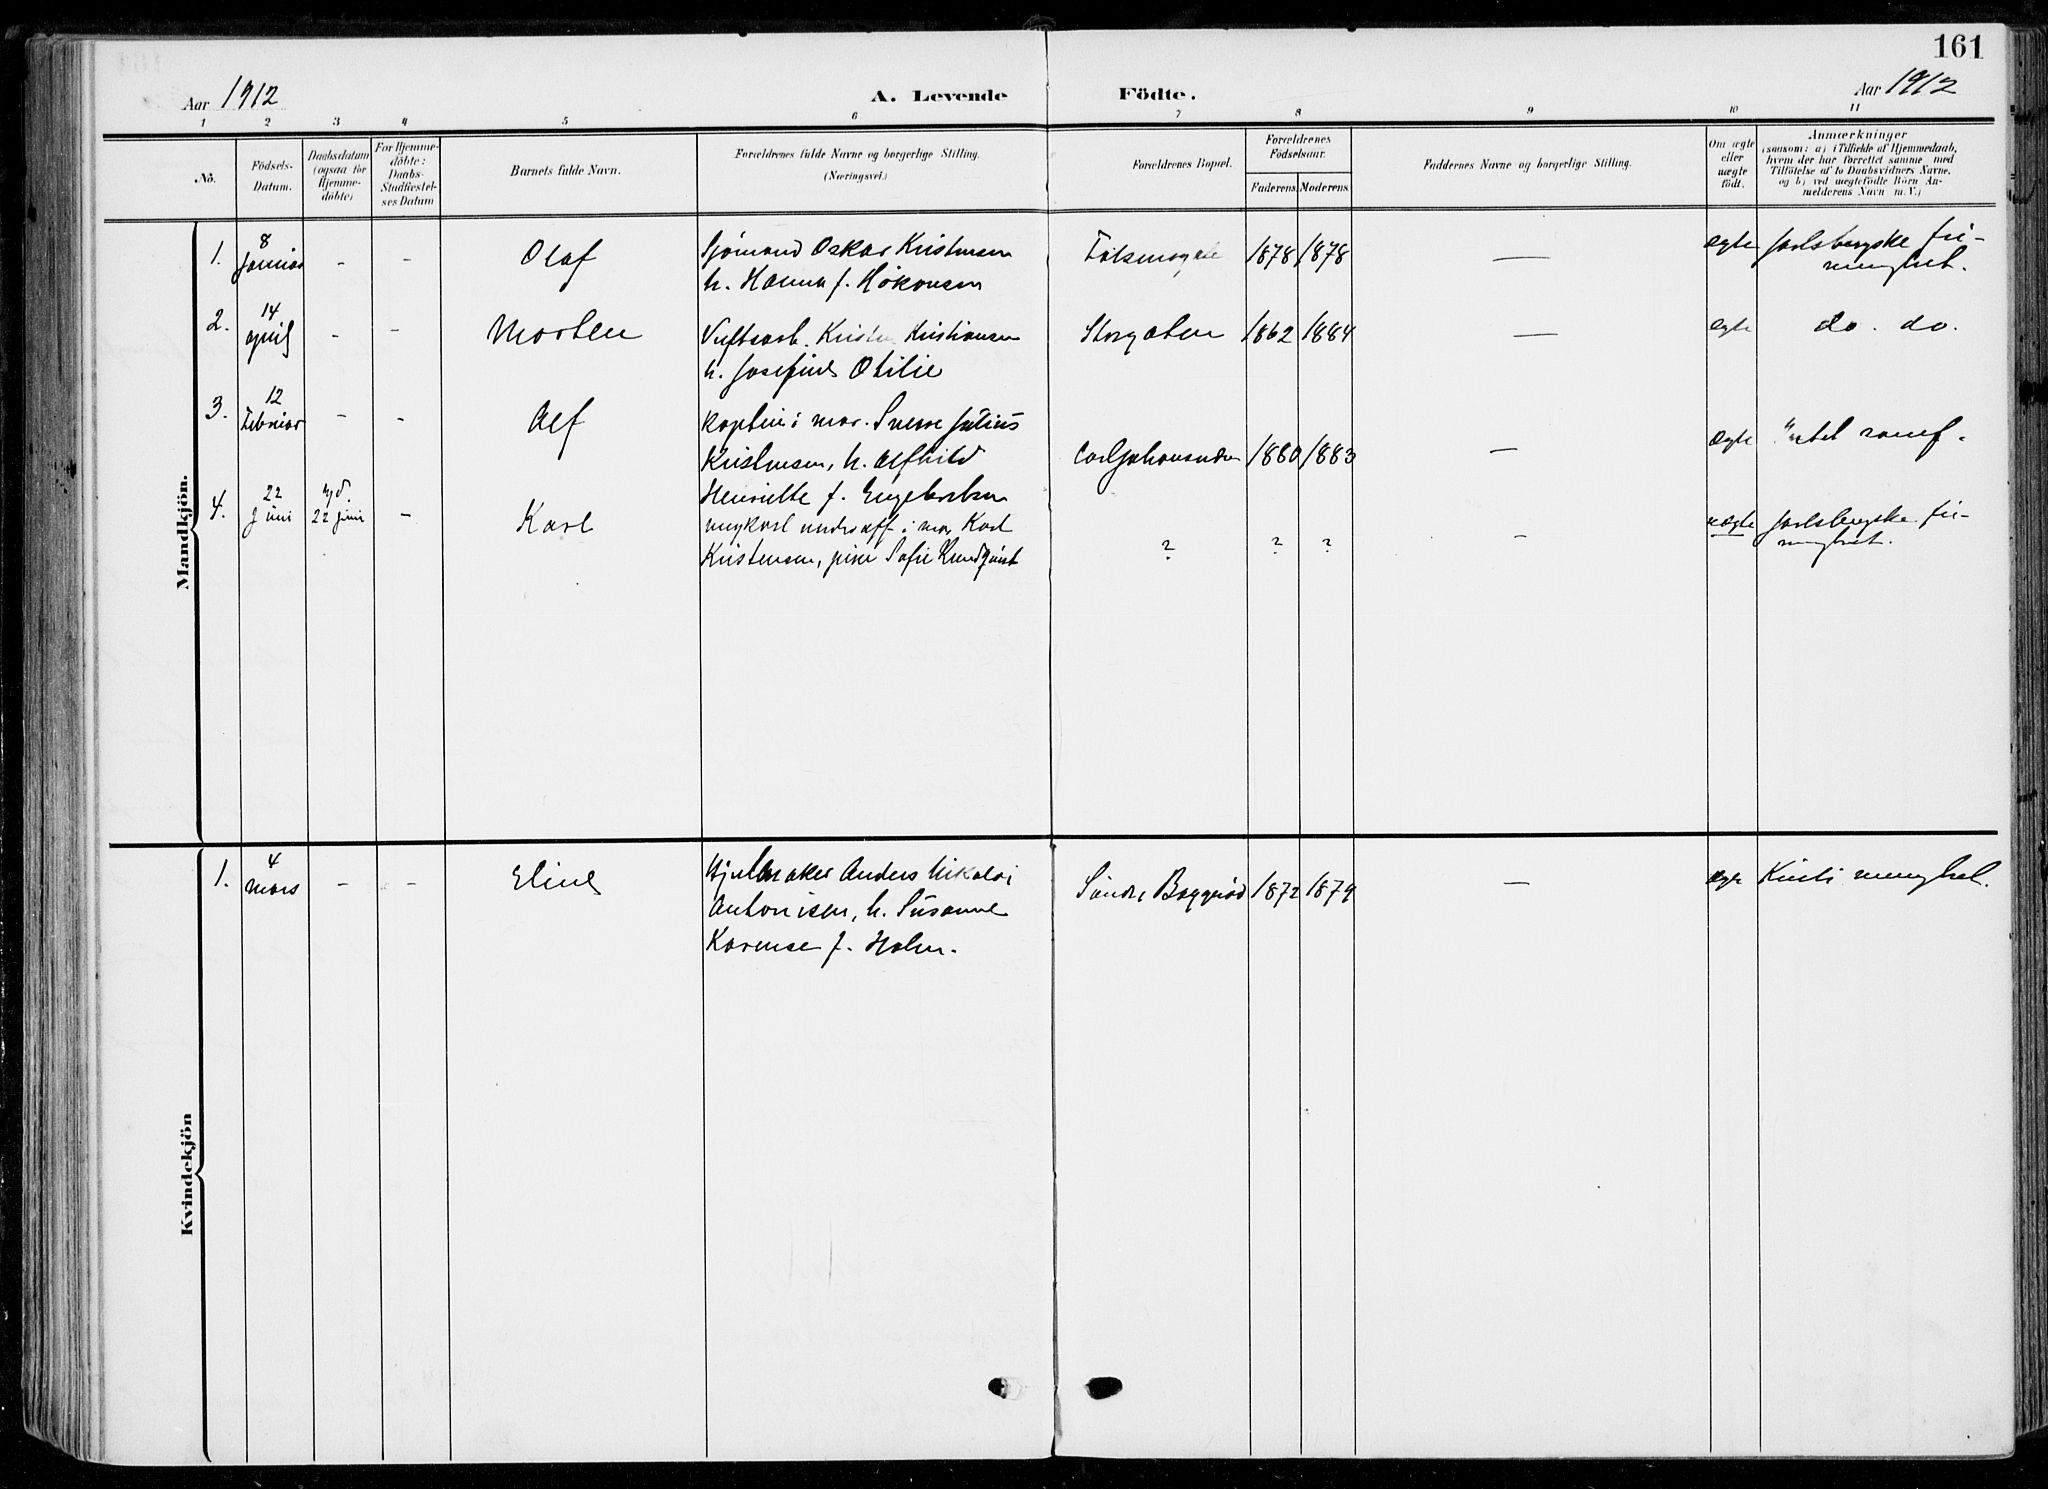 161
Aar 1912
A. Levende Födte.
Aar 1912
1 2 3 4 5 6 7 8 9 10 11
No.
Födsels-
Datum.
Daabsdatum
(ogsaa for
Hjemme-
döbte)
For Hjemme-
döbte:
Daabs-
Stadfæstel-
ses Datum
Barnets fulde Navn.
Forældrenes fulde Navne og borgerlige Stilling.
(Næringsvei.)
Forældrenes Bopæl.
Forældrenes
Födselsaar.
Faderens Moderens.
Faddernes Navne og borgerlige Stilling.
Om ægte
eller
uægte
födt.
Anmærkninger
(saasom: a) i Tilfælde af Hjemmedaab,
hvem der har forrettet samme, med
Tilföielse af to Daabsvidners Navne,
og b) ved uægtefödte Börn An-
melderens Navn m. V.)
Mandkjön.
1. 8 Januar - - Olaf
Sjömand Oskar Kristensen
h. Hanna f. Håkonsen
1878 1878 — ægte Jarlsbergske fri-
menghet.
2. 14 april - - Morten
Kristian Kristiansen
h. Josefine Otilie
Storgaten 1862 1884 — ægte do. do.
3. 12 Februar - - Alf
kaptein i mar. Sverre Julius
Kristensen, h. Alfhild
Henriette f. Engebretsen
1880 1883 — ægte
4. 22 Juni 22 juni - Karl
underoff. i mar Karl
Kristensen, pike Sofie
? ? ? - uægte Jarlsbergske fri-
menghet.
Kvindekjön
1. 4 mars - - Eline
Hjulmaker Anders Nikolai
Antonisen, h. Susanne
Karense f. Holm.
Söndre 1872 1879 — ægte Kristi menghet.